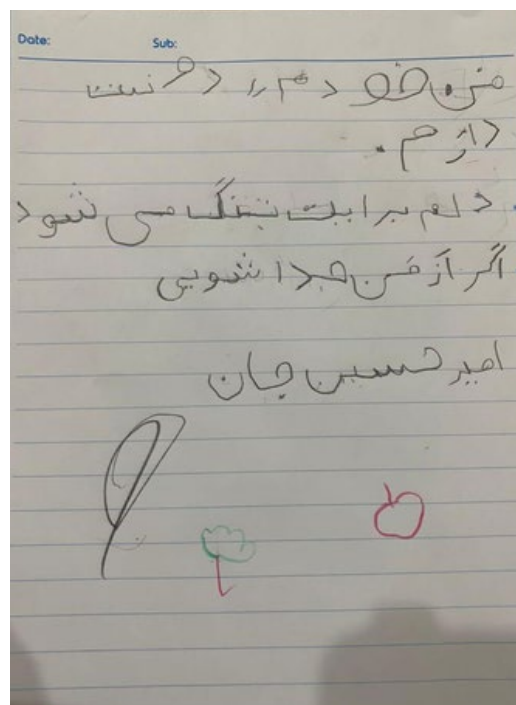 Date: Sub:
من خو دم را دوست
دارم.
دلم برایت تنگ می شود
اگر از من جدا شویی
امیر حسین جان